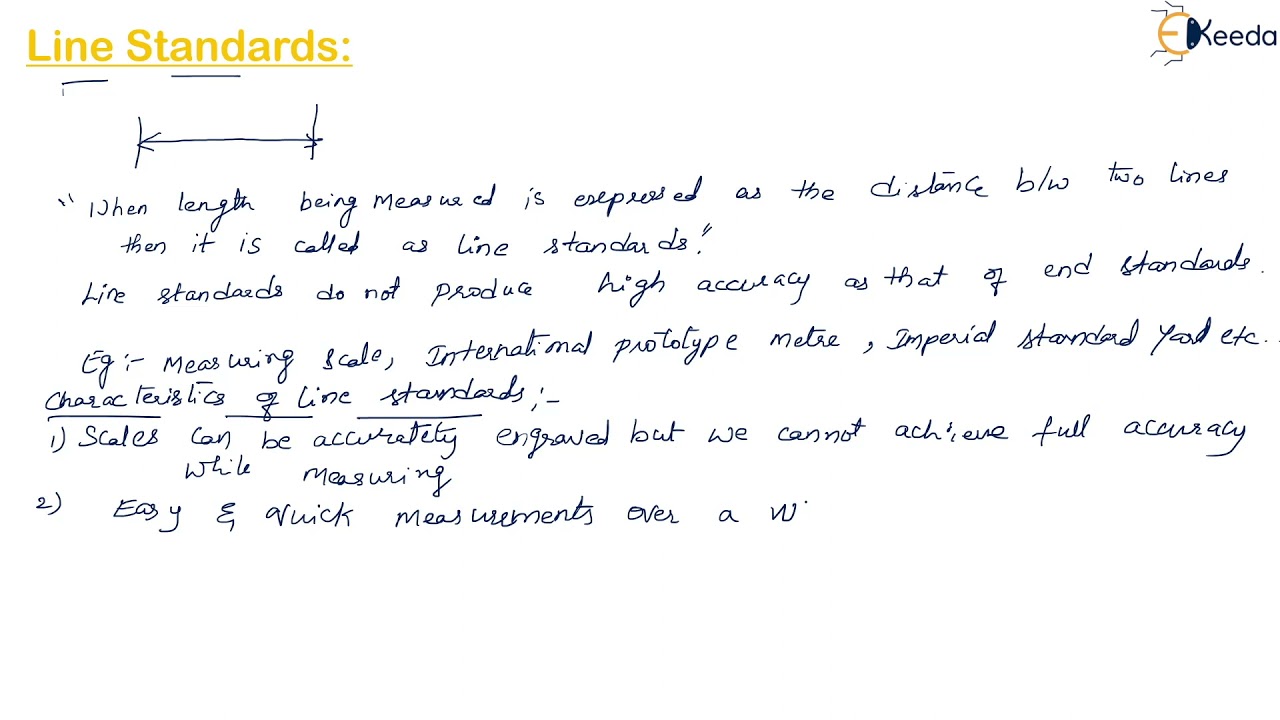 Line Standards:
EKeeda
"When length being measured is expressed as the distance b/w two lines
then it is called as line standards."
Line standards do not produce high accuracy as that of end standards.
Eg :- Measuring scale, International prototype metre, Imperial standard Yard etc..
Characteristics of line standards :-
1) Scales can be accurately engraved but we cannot achieve full accuracy
while measuring
2) Easy & quick measurements over a w